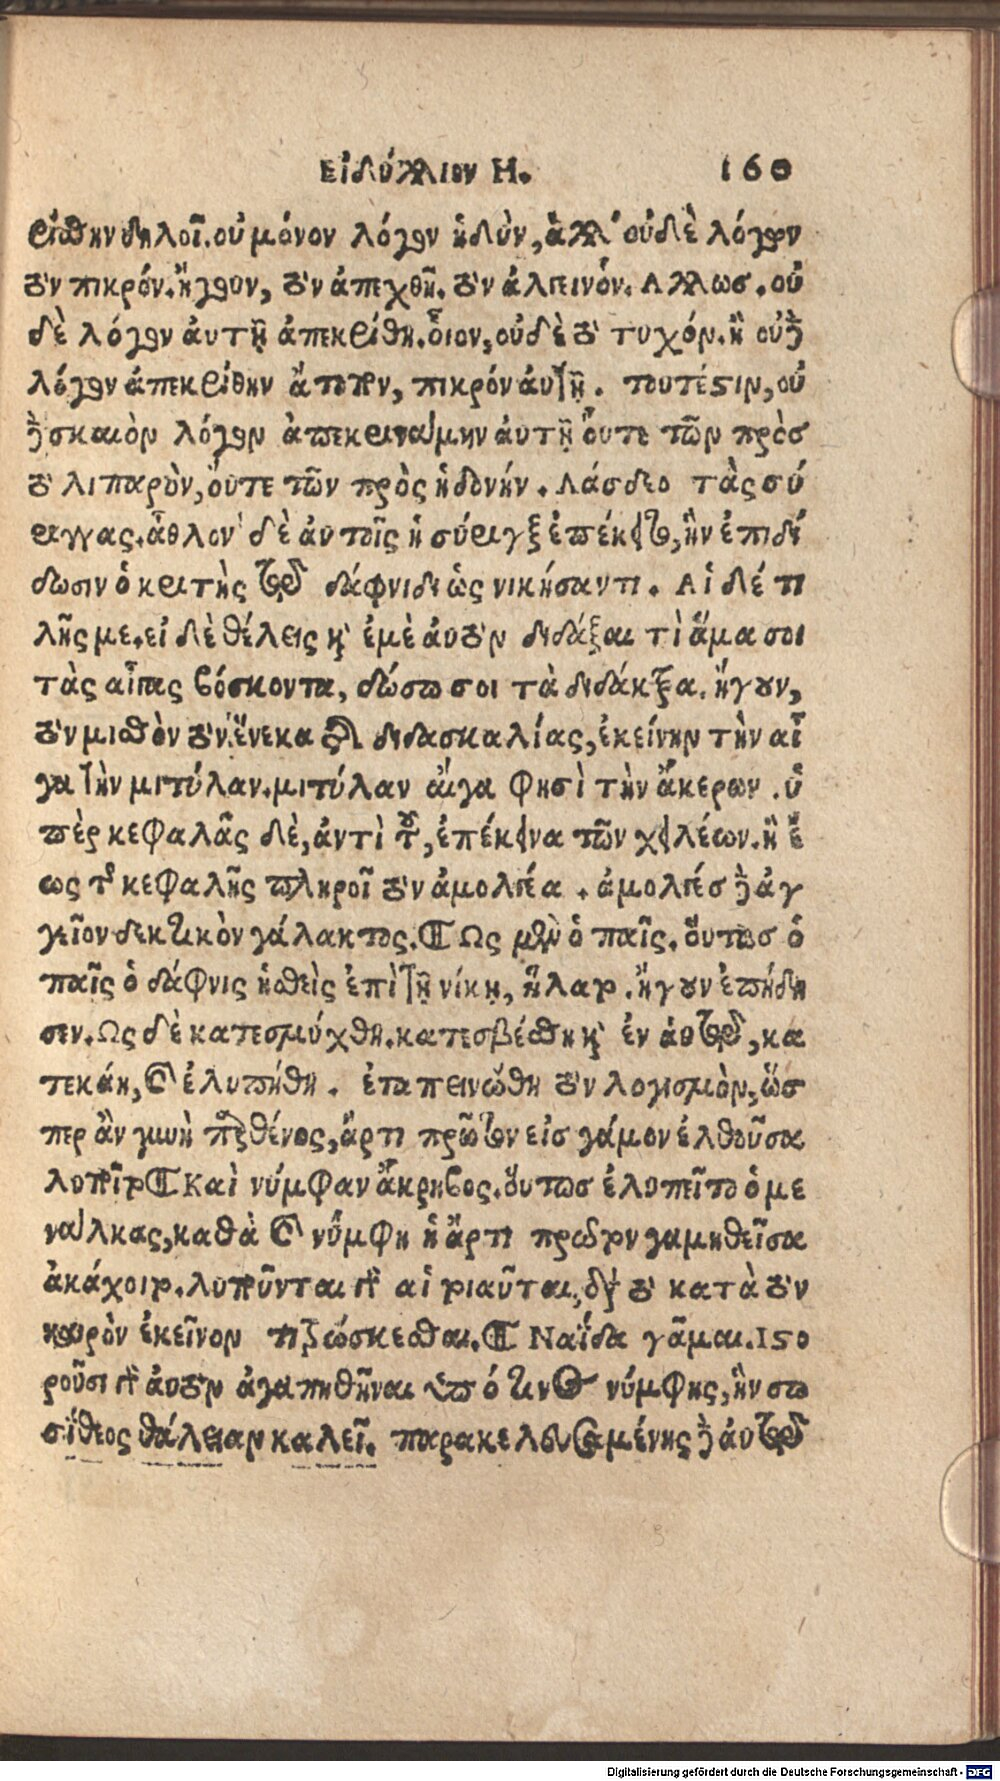 Εἰδύλλιον Η. 160
ρίσθην δηλοῖ. οὐ μόνον λόγον ἡδὺν, ἀλλ' οὐδὲ λόγον
τὸν πικρόν. ἤγουν, τὸν ἀπεχθῆ. τὸν ἀλγεινόν. Αλλως. οὐ
δὲ λόγον ἀυτῇ ἀπεκρίθη. οἷον, οὐδὲ τὸ τυχόν. ἢ οὐ γὰρ
λόγον ἀπεκρίθην ἄτοπον, πικρόν ἀυτῇ. τουτέστιν, οὐ
γὰρ σκαιὸν λόγον ἀπεκρινάμην ἀυτῇ οὔτε τῶν πρὸς
τὸ λιπαρὸν, οὔτε τῶν πρὸς ἡδονήν. Λάσδεο τὰς σύ
ριγγας. ἆθλον δὲ ἀυτοῖς ἡ σύριγξ ἐπέκειτο, ἣν ἐπιδί
δωσιν ὁ κριτὴς τῷ δάφνιδι ὡς νικήσαντι. Αἰ δέ τι
λῇς με. εἰ δὲ θέλεις καὶ ἐμὲ ἀυτὸν διδάξαι τὶ ἅμα σοι
τὰς αἶγας βόσκοντα, δώσω σοι τὰ δίδακτρα. ἤγουν,
τὸν μισθὸν τὸν ἕνεκα τῆς διδασκαλίας, ἐκείνην τὴν αἶ
γα τὴν μιτύλαν. μιτύλαν αἶγα φησὶ τὴν ἄκερων. ὑ
πὲρ κεφαλᾶς δὲ, ἀντὶ τοῦ, ἐπέκεινα τῶν χειλέων. ἢ ἕ
ως τῆς κεφαλῆς πληροῖ τὸν ἀμολγέα. ἀμολγεύς γὰρ ἀγ
γεῖον δεκτικὸν γάλακτος. Ως μὲν ὁ παῖς. οὕτως ὁ
παῖς ὁ δάφνις ἡσθεὶς ἐπὶ τῇ νίκῃ, ἥλατο. ἤγουν ἐπήδη
σεν. Ως δὲ κατεσμύχθη. κατεσβέσθη καὶ ἐν ἀυτῷ, κα
τεκάη, καὶ ἐλυπήθη. ἐταπεινώθη τὸν λογισμὸν, ὥσ
περ ἂν γυνὴ παρθένος, ἄρτι πρῶτον εἰς γάμον ἐλθοῦσα
λυποῖτο Καὶ νύμφαν ἄκρηβος. οὕτως ἐλυπεῖτο ὁ με
νάλκας, καθὰ καὶ νύμφη ἡ ἄρτι πρῶτον γαμηθεῖσα
ἀκάχοιτο. λυποῦνται γὰρ αἱ τοιαῦται, διὰ τὸ κατὰ τὸν
καιρὸν ἐκεῖνον τιτρώσκεσθαι. Ναΐδα γᾶμαι. Ιστο
ροῦσι γὰρ ἀυτὸν ἀγαπηθῆναι ὑπό τινος νύμφης, ἣν σω
σίθεος θάλειαν καλεῖ. παρακελευσαμένης γὰρ ἀυτῷ
Digitalisierung gefördert durch die Deutsche Forschungsgemeinschaft - DFG